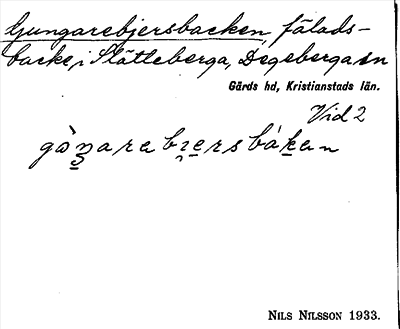 Gungarebjersbacken, fälads-
backe, i Slätteberga, Degeberga sn
Gärds hd, Kristianstads län.
Vid 2
gåŋarebɪersbákan
NILS NILSSON 1933.